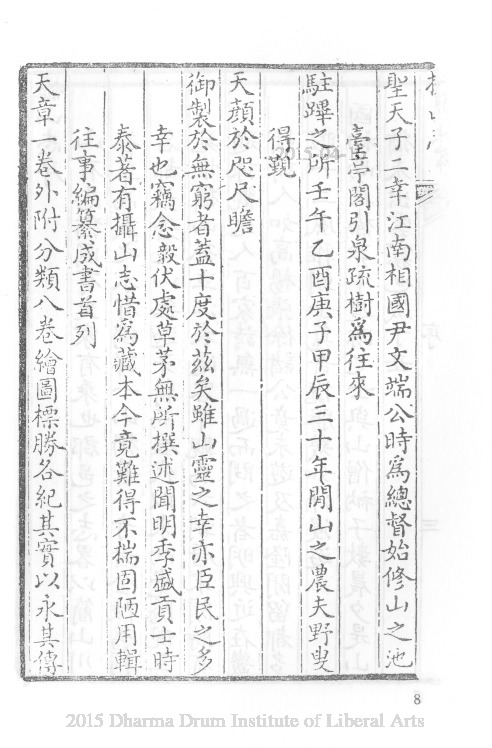 聖天子二幸江南相國尹文端公時爲總督始修山之池
臺亭閣引泉疏樹爲往來
駐蹕之所壬午乙酉庚子甲辰三十年閒山之農夫野叟
得覲
天顏於咫尺瞻
御製於無窮者蓋十度於茲矣雖山靈之幸亦臣民之多
幸也竊念毅伏處草茅無所撰述聞明季盛貢士時
泰著有攝山志惜爲藏本今竟難得不揣固陋用輯
往事編纂成書首列
天章一卷外附分類八卷繪圖標勝各紀其實以永其傳
8
2015 Dharma Drum Institute of Liberal Arts